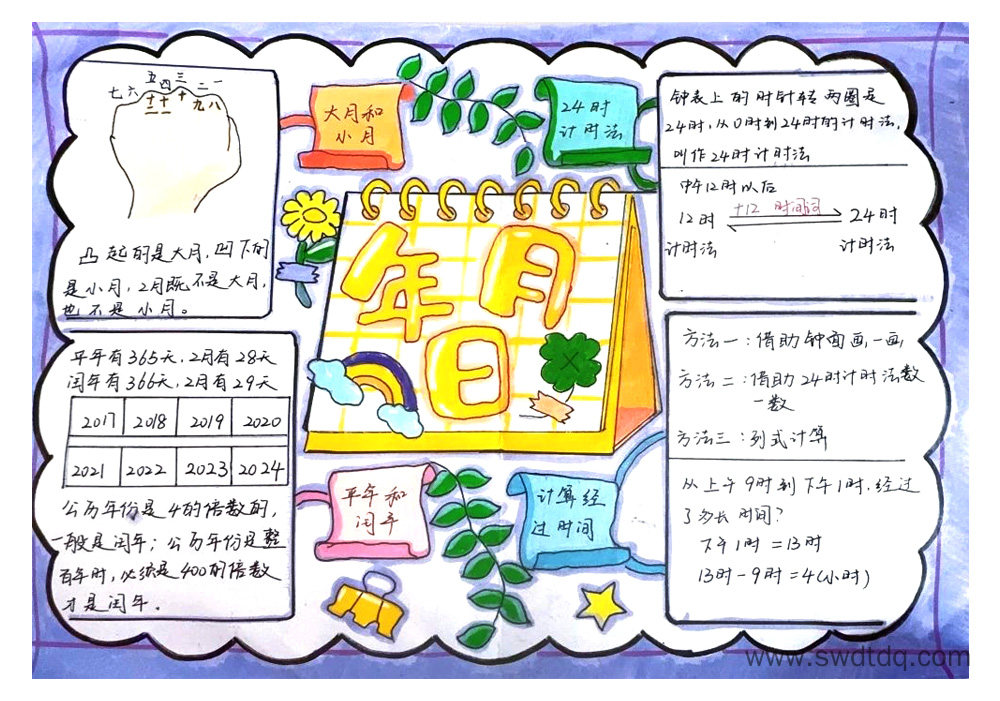 五 三 一
七 六 四 二
十二 十一 十 九 八
凸起的是大月,凹下的
是小月,2月既不是大月,
也不是小月。
大月和
小月
24时
计时法
钟表上的时针转两圈是
24时,从0时到24时的计时法,
叫作24时计时法
中午12时以后
12时 +12 时间词 24时
计时法 计时法
年月
日
平年有365天,2月有28天
闰年有366天,2月有29天
2017 2018 2019 2020
2021 2022 2023 2024
公历年份是4的倍数的,
一般是闰年;公历年份是整
百年时,必须是400的倍数
才是闰年.
平年和
闰年
计算经
过时间
方法一:借助钟面画一画
方法二:借助24时计时法数
一数
方法三:列式计算
从上午9时到下午1时,经过
了多长时间?
下午1时=13时
13时-9时=4(小时)
www.swdtdq.com